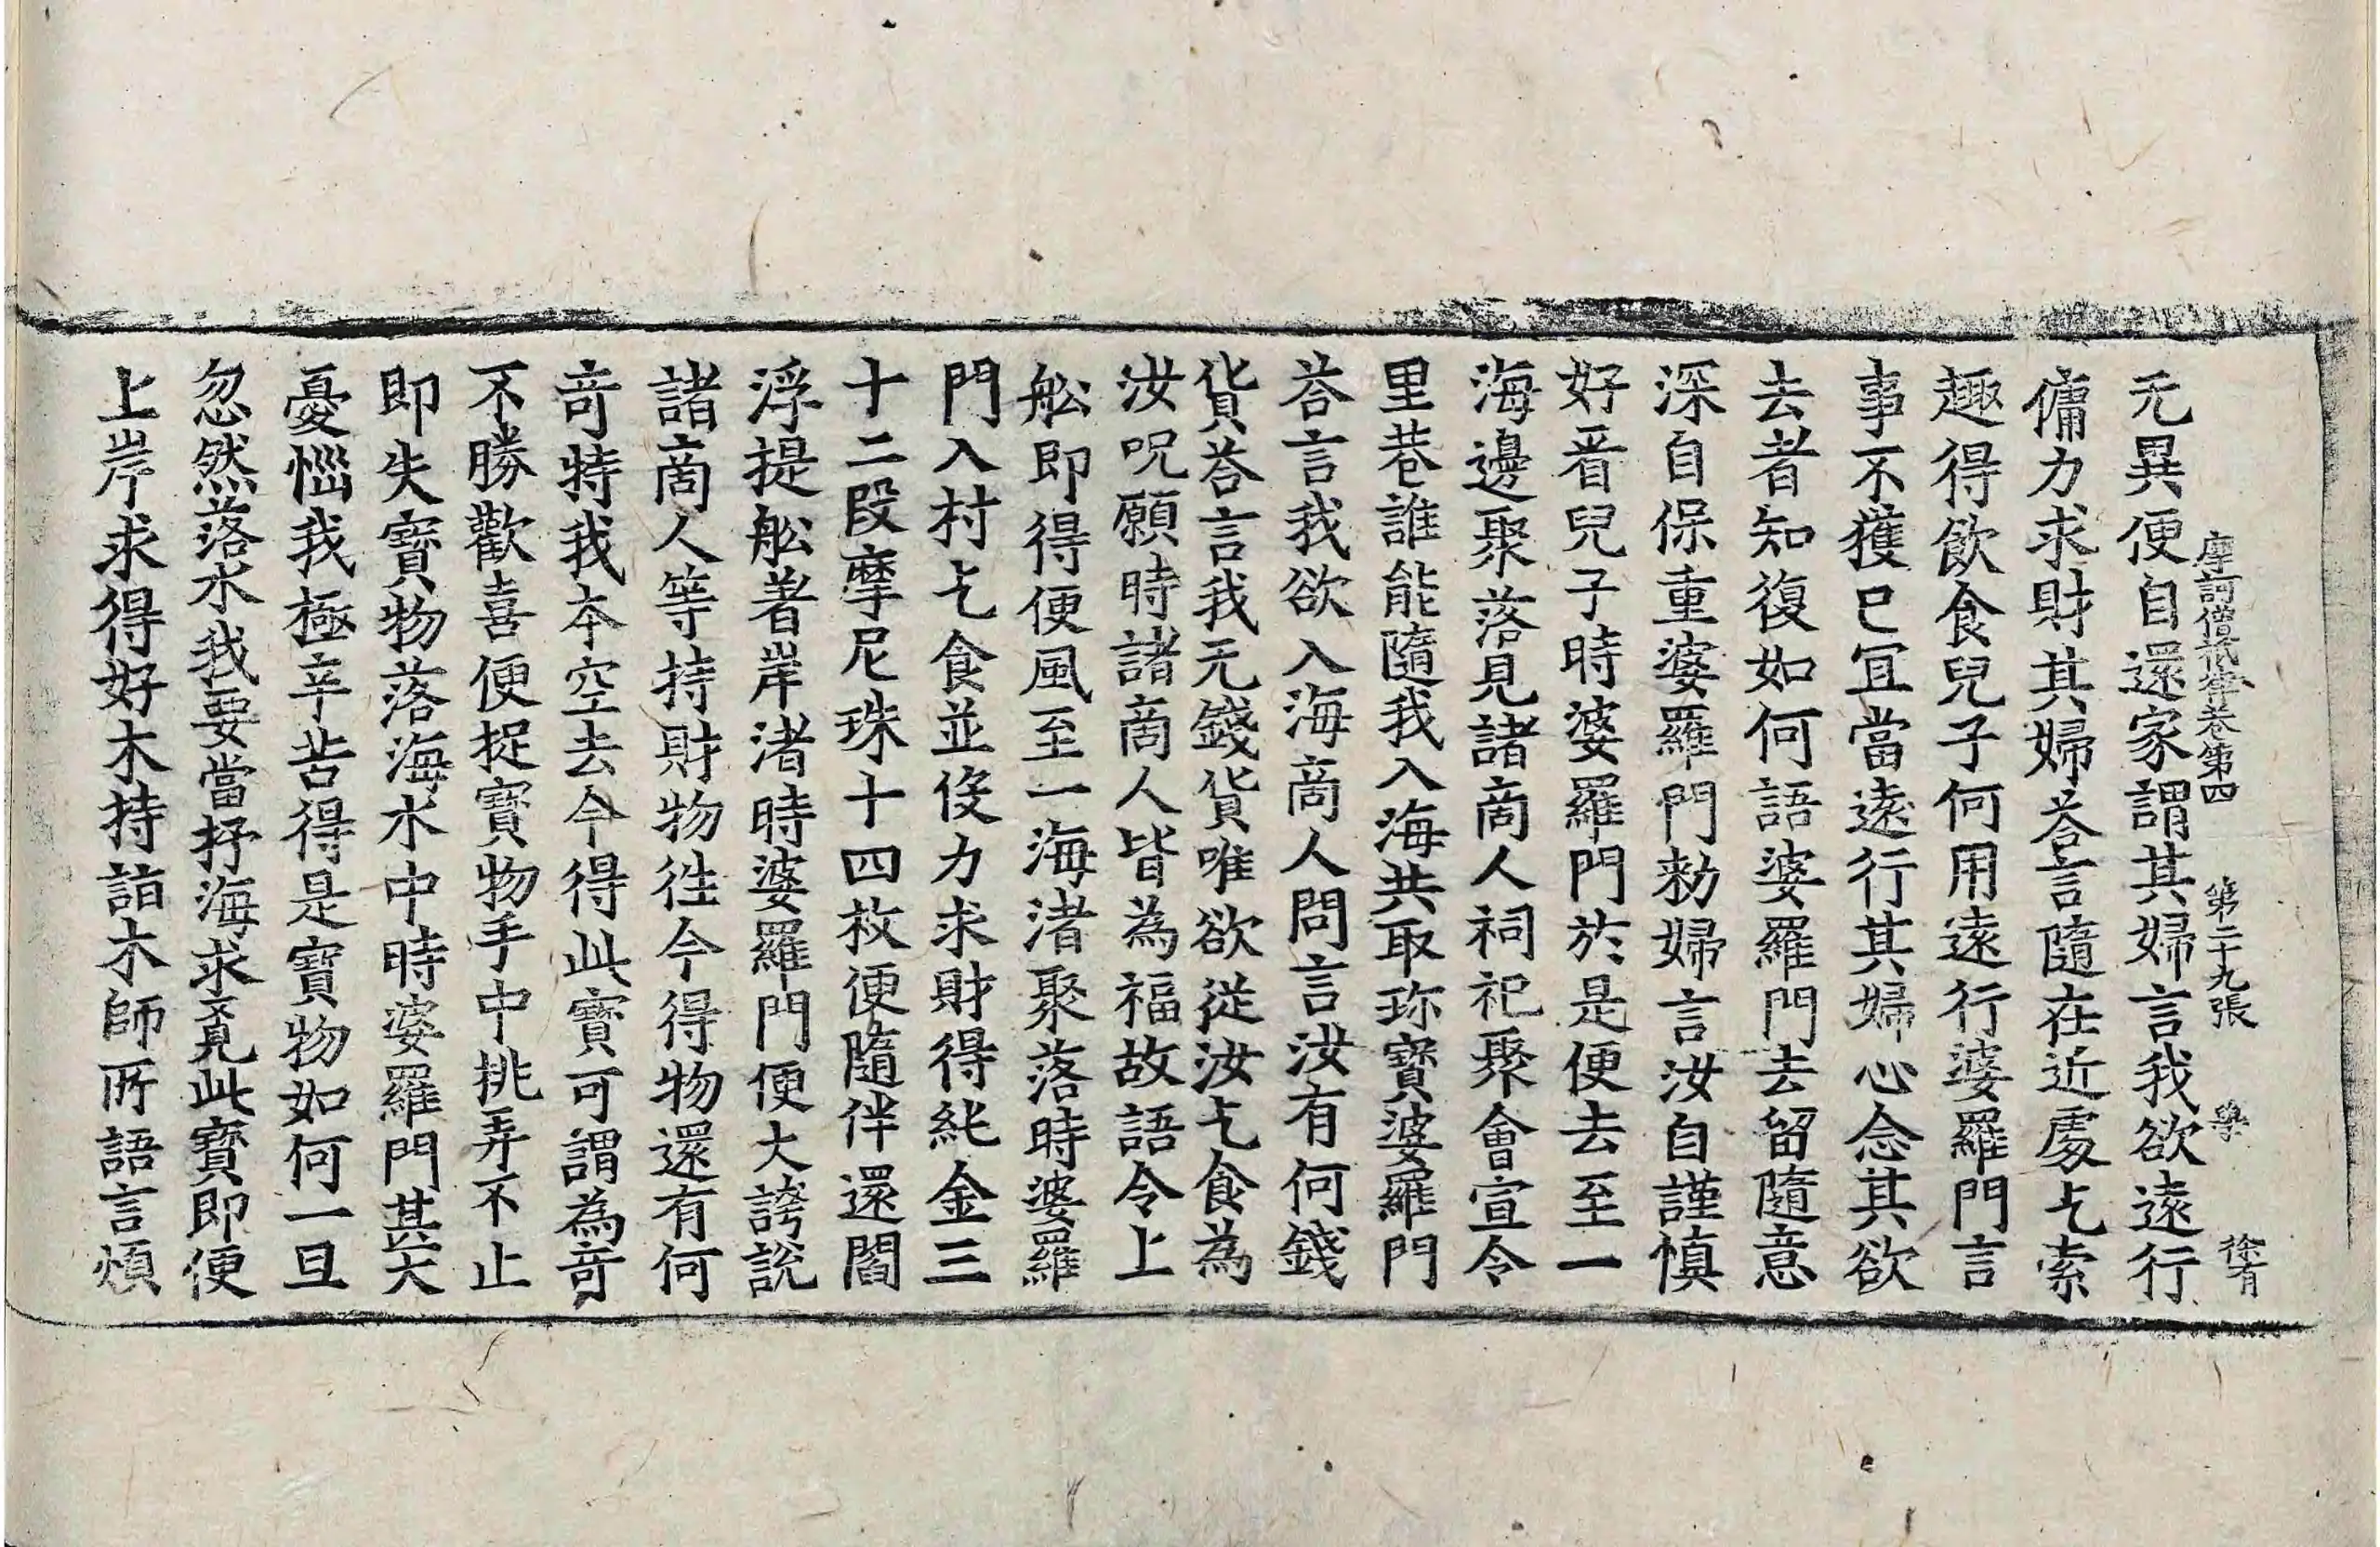 摩訶僧祇律卷第四 第二十九張 學 徐有
无異便自還家謂其婦言我欲遠行
傭力求財其婦荅言隨在近處乞索
趣得飲食兒子何用遠行婆羅門言
事不獲已宜當遠行其婦心念其欲
去者知復如何語婆羅門去留隨意
深自保重婆羅門勑婦言汝自謹慎
好看兒子時婆羅門於是便去至一
海邊聚落見諸商人祠祀聚會宣令
里巷誰能隨我入海共取珎寶婆羅門
荅言我欲入海商人問言汝有何錢
貨荅言我无錢貨唯欲從汝乞食為
汝呪願時諸商人皆為福故語令上
舩即得便風至一海渚聚落時婆羅
門入村乞食並役力求財得純金三
十二段摩尼珠十四枚便隨伴還閻
浮提舩著岸渚時婆羅門便大誇說
諸商人等持財物徃今得物還有何
竒特我本空去今得此寶可謂為竒
不勝歡喜便捉寶物手中挑弄不止
即失寶物落海水中時婆羅門甚大
憂惱我極辛苦得是寶物如何一旦
忽然落水我要當抒海求覓此寶即便
上岸求得好木持詣木師所語言煩